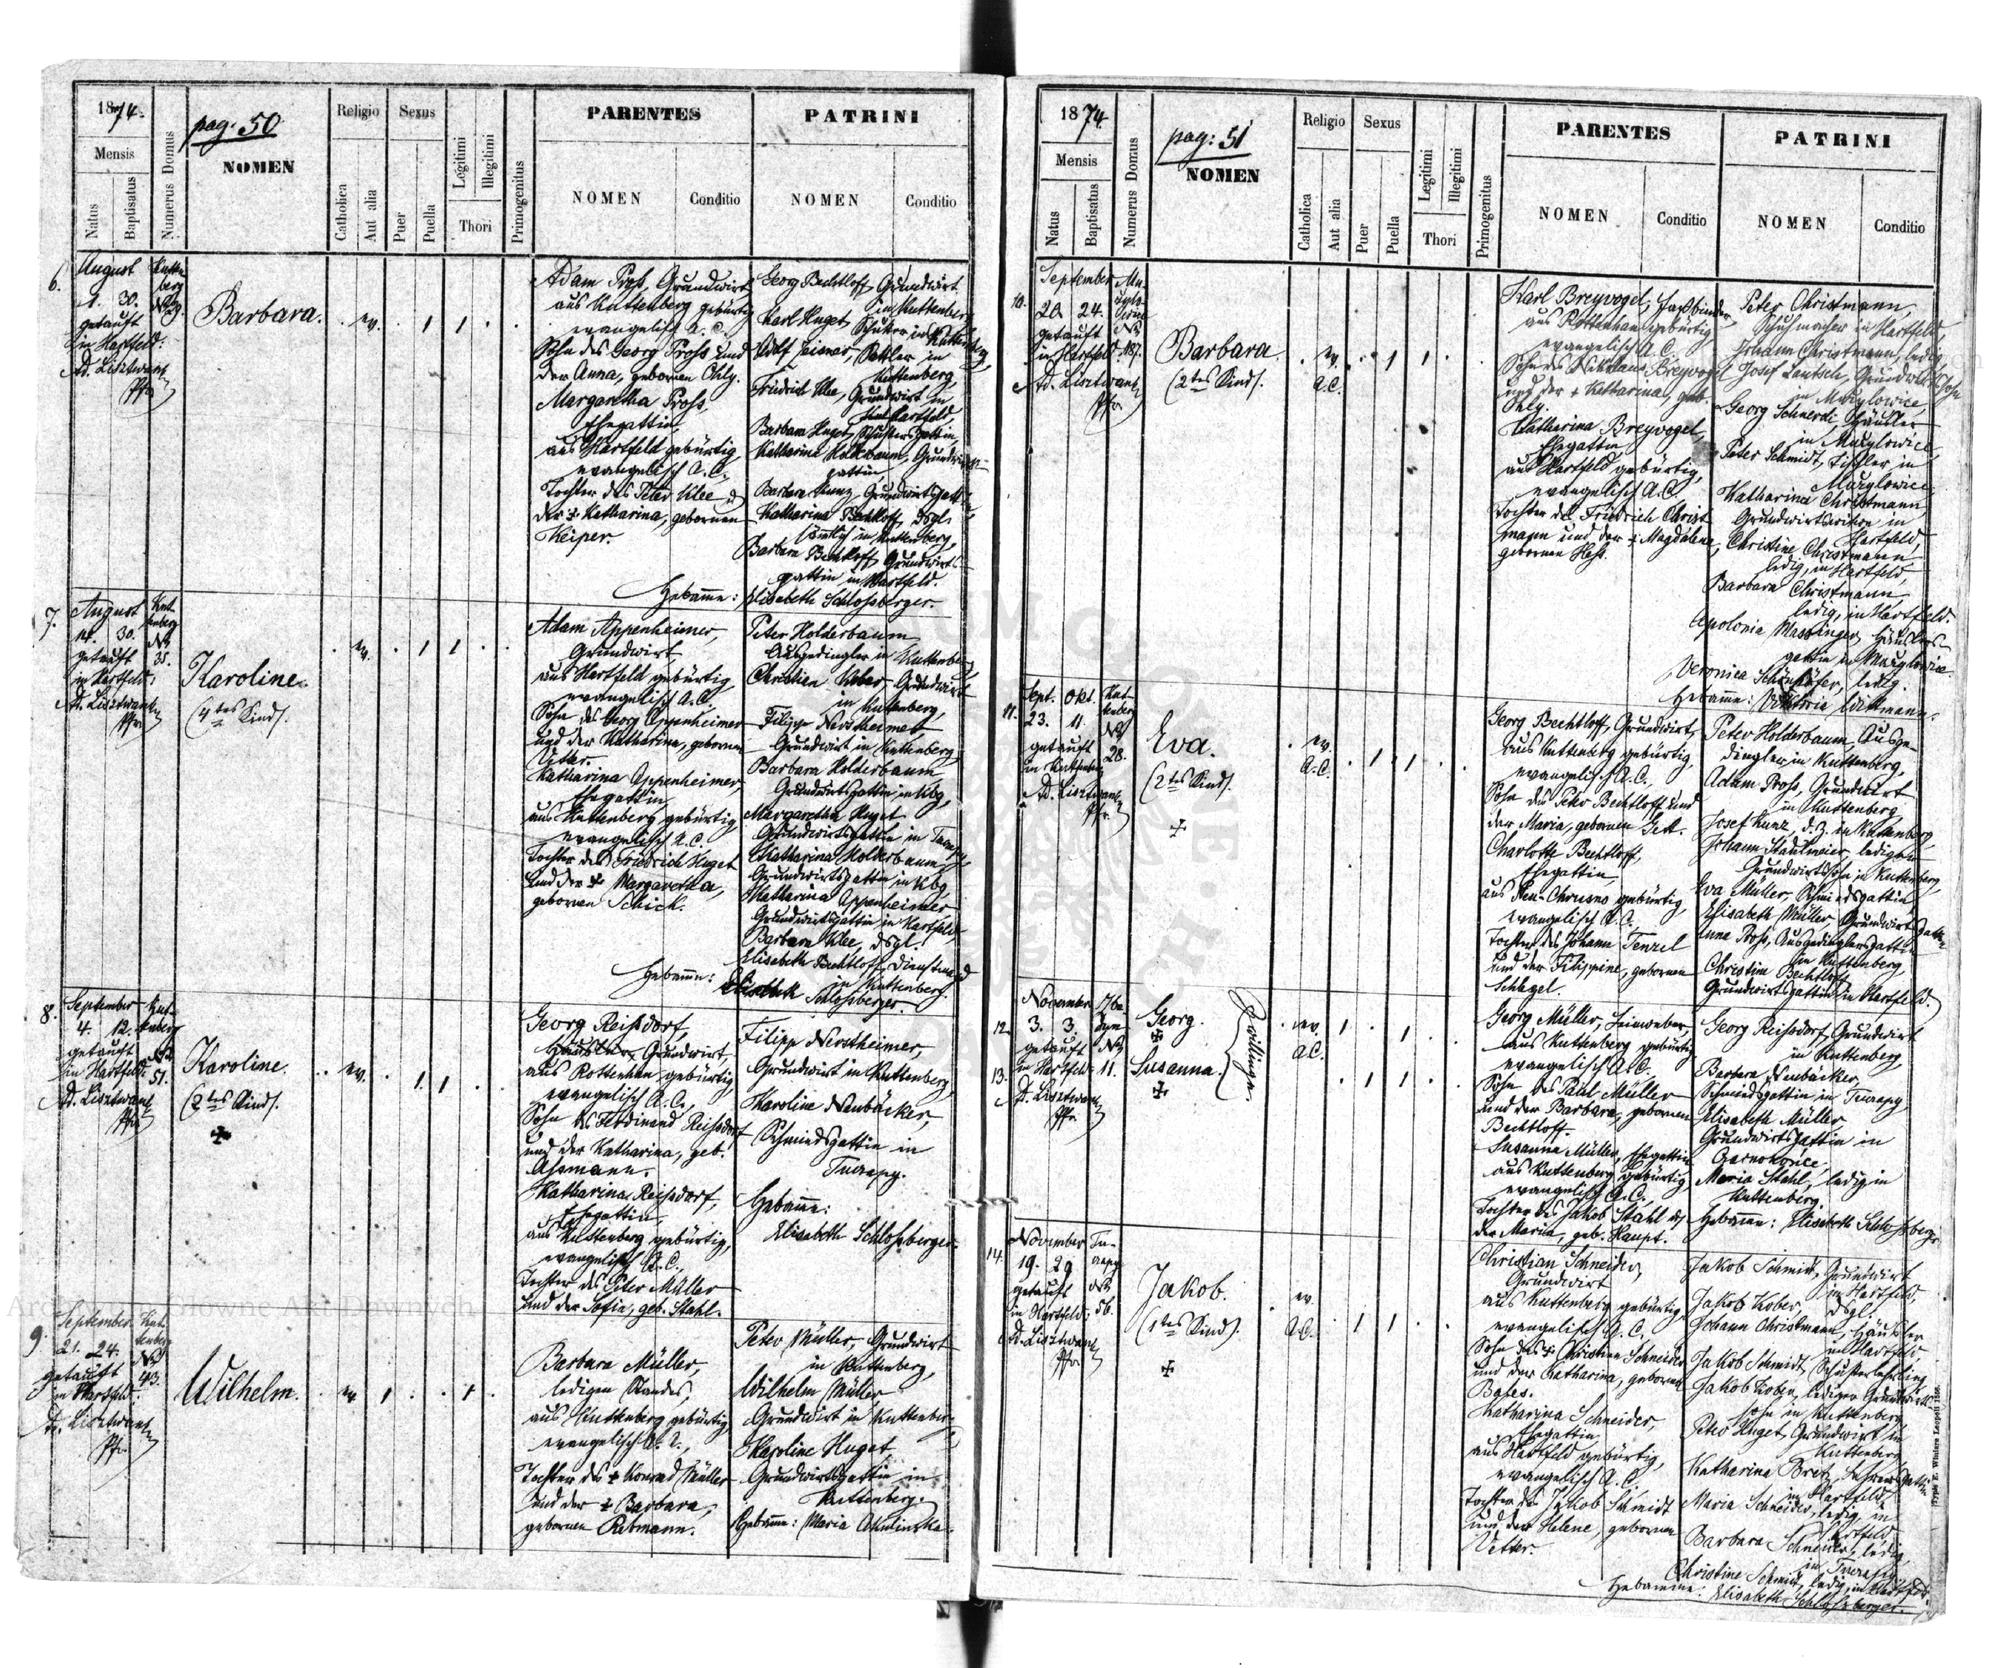 1874.
pag. 50
Mensis
Natus
Baptisatus
Numerus Domus
NOMEN
Religio
Catholica
Aut alia
Sexus
Puer
Puella
Legitimi
Illegitimi
Thori
Primogenitus
PARENTES
NOMEN
Conditio
PATRINI
NOMEN
Conditio
6.
August
1. 30.
getauft
in Hartfeld:
Barbara.
ev.
Adam Proß, Grundwirt
aus Kuttenberg gebürtig
evangelisch A. C.
Sohn des Georg Proß und
der Anna, gebornen Ohly.
Margaretha Proß
Ehegattin,
aus Hartfeld gebürtig,
evangelisch A. C.
Tochter des Peter Klee u
der + Katharina, gebornen
Keiper.
Georg Bechtloff Grundwirt
in Kuttenberg
Karl Huget
Kuttenberg,
Friedrich Klee, Grundwirt in
Hartfeld
Barbara Huget, Schustersgattin,
Katharina Holderbaum, Grundwirts-
gattin,
Barbara Kunz, Grundwirtsgattin,
Katharina Bechtloff, dsgl.
sämtlich in Kuttenberg,
Barbara Bechtloff Grundwirts-
gattin in Hartfeld.
Hebamme: Elisabeth Schloßberger.
7.
August
14. 30.
getauft
in Hartfeld:
Kut-
tenberg
No
35.
Karoline.
(4tes Kind).
ev.
Adam Appenheimer,
Grundwirt,
aus Hartfeld gebürtig,
evangelisch A. C.
Sohn des Georg Appenheimer
und der Katharina, gebornen
Katharina Appenheimer,
Ehegattin,
aus Kuttenberg gebürtig,
evangelisch A. C.
Tochter des Friedrich Huget
und der + Margaretha,
gebornen Schick.
Peter Holderbaum
Ausgedingler in Kuttenberg,
Christian Kober Grundwirt
in Kuttenberg,
Filipp Nerstheimer
Grundwirt in Kuttenberg,
Barbara Holderbaum
Grundwirtsgattin in Kbg,
Margaretha Huget
Grundwirtsgattin in Tuczapy,
Katharina Holderbaum
Grundwirtsgattin in Kbg,
Katharina Appenheimer
Grundwirtsgattin in Hartfeld,
Barbara Klee, dsgl.
Elisabeth Bechtloff, Dienstmagd
in Kuttenberg.
Hebamme: Elisabeth Schloßberger.
8.
September
4. 12.
getauft
in Hartfeld:
Kut-
tenberg
No
51.
Karoline.
(2tes Kind).
ev.
Georg Reißdorf,
Grundwirt,
aus Rottenhan gebürtig
evangelisch A. C.,
Sohn des Ferdinand Reißdorf
und der Katharina, geb.
Aßmann.
Katharina Reißdorf,
Ehegattin,
aus Kuttenberg gebürtig,
evangelisch A. C.,
Tochter des Peter Müller
und der Sofia, geb. Stahl.
Filipp Nerstheimer,
Grundwirt in Kuttenberg,
Karoline Neubäcker,
Schmiedsgattin in
Tuczapy.
Hebamme:
Elisabeth Schloßberger.
9.
September
21. 24.
getauft
in Hartfeld:
Kut-
tenberg
No
43.
Wilhelm.
ev.
Barbara Müller,
ledigen Standes,
aus Kuttenberg gebürtig
evangelisch A. C.,
Tochter des + Konrad Müller
und der + Barbara,
gebornen Rebmann.
Peter Müller, Grundwirt
in Kuttenberg,
Wilhelm Müller
Grundwirt in Kuttenberg,
Karoline Huget
Grundwirtsgattin in
Kuttenberg.
Hebamme: Maria
1874.
pag: 51
Mensis
Natus
Baptisatus
Numerus Domus
NOMEN
Religio
Catholica
Aut alia
Sexus
Puer
Puella
Legitimi
Illegitimi
Thori
Primogenitus
PARENTES
NOMEN
Conditio
PATRINI
NOMEN
Conditio
10.
September
20. 24.
getauft
in Hartfeld
No
187.
Barbara.
(2tes Kind).
ev.
A.C.
Karl Breyvogel, Faßbinder
aus Rottenhan gebürtig,
evangelisch A. C.
Sohn des Nikolaus Breyvogel
und der + Katharina, geb.
Ohly.
Katharina Breyvogel,
Ehegattin
aus Hartfeld gebürtig,
evangelisch A.C.
Tochter des Friedrich Christ
mann und der + Magdalena,
gebornen Heß.
Peter Christmann,
Schuhmacher in Hartfeld
Johann Christmann, ledig,
Josef Lautsch, Grundwirtssohn
in Mużyłowice,
Georg Schnerdi, Häusler
in Mużyłowice,
Peter Schmidt, Tischler in
Mużyłowice,
Katharina Christmann
Grundwirtin in
Hartfeld,
Christine Christmann
ledig, in Hartfeld,
Barbara Christmann
ledig, in Hartfeld.
Apolonia Massinger, Häuslers-
gattin in Mużyłowice.
Hebamme: Viktoria
11.
Sept. Okt.
23. 11.
getauft
in Kuttenberg
Kut-
tenberg
No
28.
Eva.
(2tes Kind).
ev.
A.C.
Georg Bechtloff, Grundwirt,
aus Kuttenberg gebürtig,
evangelisch A.C.,
Sohn des Peter Bechtloff und
der Maria, gebornen Gett.
Charlotte Bechtloff,
Ehegattin,
aus Neu-Chrusno gebürtig,
evangelisch A.C.
Tochter des Johann Tenzel
und der Filippine, gebornen
Schlegel.
Peter Holderbaum, Ausge-
dingler in Kuttenberg,
Adam Proß, Grundwirt
in Kuttenberg,
Josef Kunz, d. Z. in Kuttenberg,
Johann Stadlmeier lediger
Grundwirtssohn in Kuttenberg,
Eva Müller, Schmiedsgattin,
Elisabeth Müller Grundwirtsgattin
Anna Proß, Ausgedinglersgattin
in Kuttenberg,
Christine Bechtloff
Grundwirtsgattin in Hartfeld.
12.
13.
November
3. 3.
getauft
in Hartfeld
No
11.
Georg.
Susanna.
Zwillinge
ev.
A.C.
Georg Müller, Leinweber,
aus Kuttenberg gebürtig
evangelisch A.C.
Sohn des Paul Müller
und der Barbara, gebornen
Bechtloff.
Susanna Müller, Ehegattin
aus Kuttenberg gebürtig,
evangelisch A.C.,
Tochter des Jakob Stahl u
der Maria, geb. Haupt.
Georg Reißdorf, Grundwirt
in Kuttenberg
Barbara Neubäcker,
Schmiedsgattin in Tuczapy
Elisabeth Müller,
Grundwirtsgattin in
Czarnokonce,
Maria Stahl, ledig in
Kuttenberg
Hebamme: Elisabeth Schloßberger
14.
November
19. 29
getauft
in Hartfeld:
Tu-
czapy
No
56.
Jakob.
(1tes Kind).
ev.
A.C.
Christian Schneider,
Grundwirt
aus Kuttenberg gebürtig
evangelisch A. C.
Sohn des + Christian Schneider
und der Katharina, gebornen
Katharina Schneider,
Ehegattin
aus Hartfeld gebürtig,
evangelisch A. C.
Tochter des Jakob Schmidt
und der Helene, gebornen
Vetter.
Jakob Schmidt, Grundwirt
in Hartfeld,
Jakob Kober, dsgl.
Johann Christmann, Häusler
in Hartfeld
Jakob Schmidt, Schusterlehrling
Jakob Kober, lediger Grundwirts-
sohn in Kuttenberg
Peter Huget, Grundwirt in
Kuttenberg
Katharina Bretz, Lehrersgattin
in Hartfeld,
Maria Schneider, ledig, in
Hartfeld,
Barbara Schneider, ledig,
in Tuczapy
Christine Schmidt, ledig, in Hartfeld.
Hebamme: Elisabeth Schloßberger.